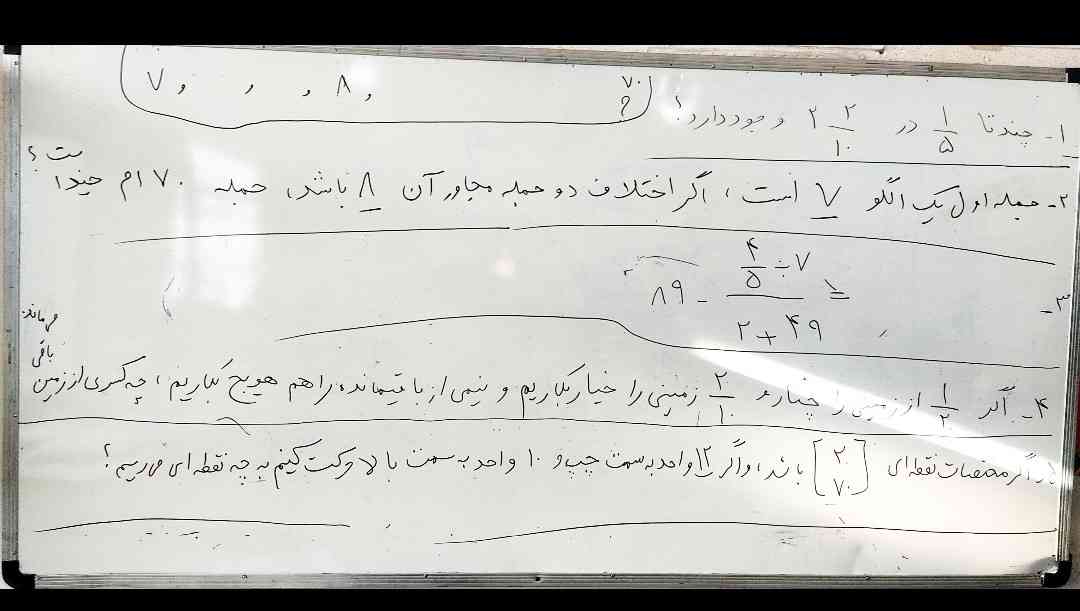 ۷, , , ۸, ۷۰ ?
۱- چندتا ۱/۵ در ۳ ۲/۱۰ وجود دارد؟
۲- جمله اول یک الگو ۷ است، اگر اختلاف دو جمله مجاور آن ۸ باشد، جمله ۷۰ ام چندا ست؟
۳- ۸۹ - (۴/۵ ÷ ۷)/(۲+۴۹) =
۴- اگر ۱/۲ از زمینی را چنار و ۲/۱۰ زمینی را خیار بکاریم و نیمی از باقیمانده را هم هویج بکاریم، چه کسری از زمین باقی می‌ماند؟
اگر مختصات نقطه‌ای [۲ ۷۰] باشد، و اگر ۱۲ واحد به سمت چپ و ۱۰ واحد به سمت بالا حرکت کنیم به چه نقطه‌ای می‌رسیم؟